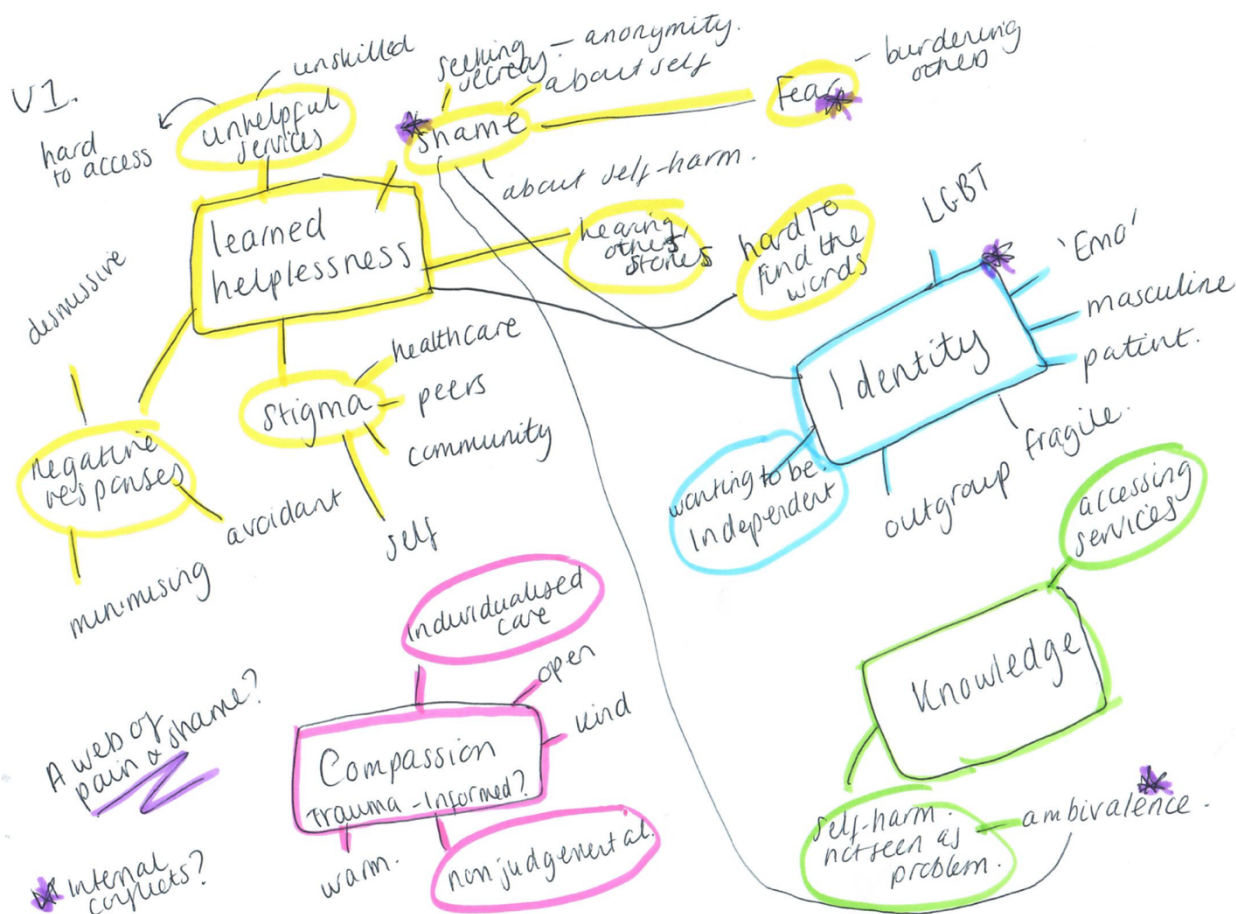 V1.
unskilled
hard
to access
unhelpful
services
seeking
secrecy - anonymity.
about self
shame
about self-harm.
Fear
- burdening
others
learned
helplessness
hearing
others'
stories
hard to
find the
words
dismissive
negative
responses
avoidant
minimising
stigma
healthcare
peers
community
self
LGBT
'Emo'
masculine
patint.
fragile.
outgroup
Identity
wanting to be
Independent
accessing
services
Knowledge
self-harm.
not seen as
problem.
- ambivalence.
individualised
care
open
kind
Compassion
Trauma-Informed?
warm.
nonjudgemental.
A web of
pain & shame?
Internal
conflicts?